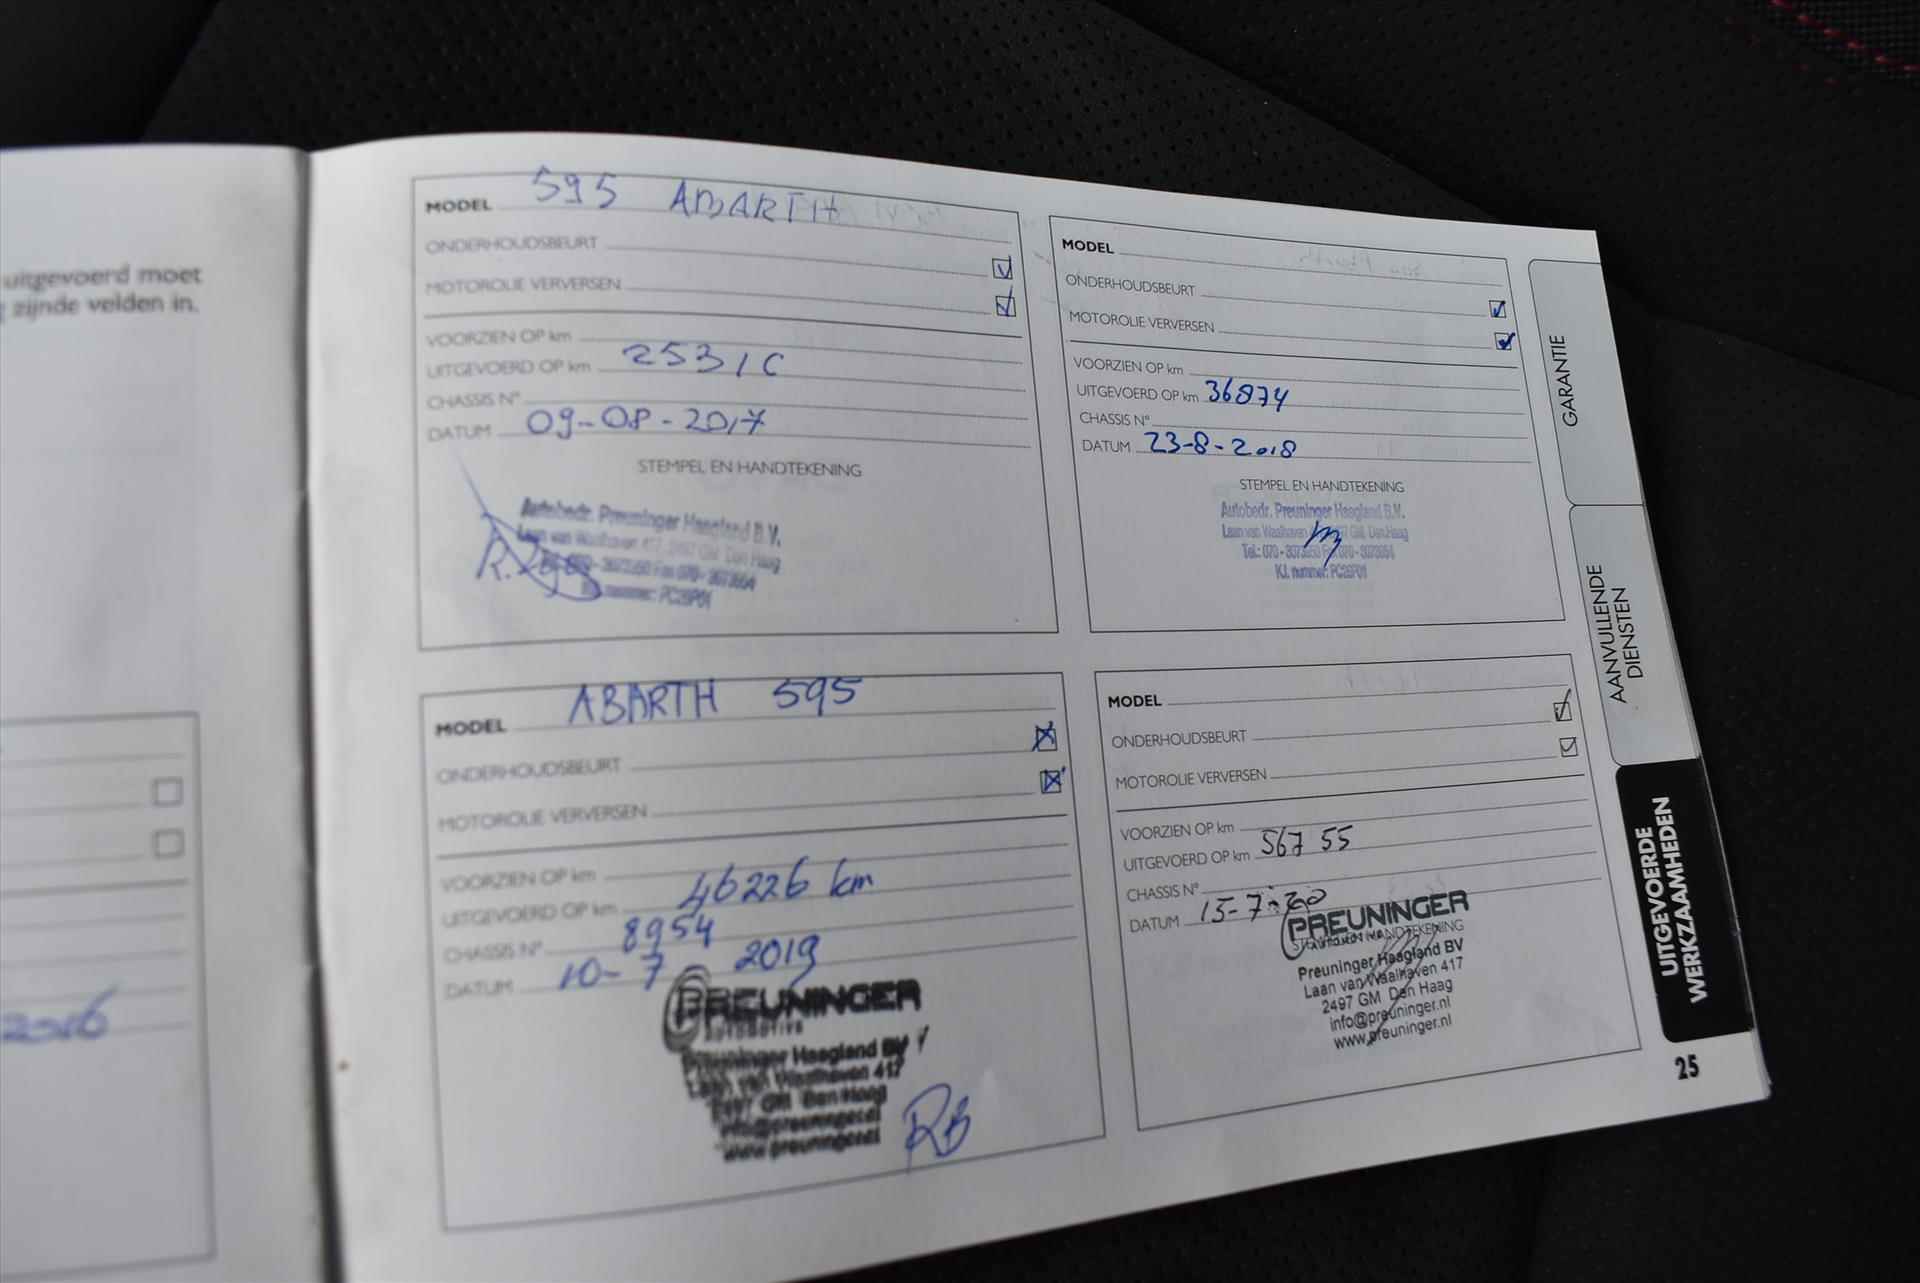 uitgevoerd moet
zijnde velden in.
2016
MODEL 595 ABARTH
ONDERHOUDSBEURT
MOTOROLIE VERVERSEN
VOORZIEN OP km
UITGEVOERD OP km 25310
CHASSIS N°
DATUM 09-08-2017
STEMPEL EN HANDTEKENING
Autobedr. Preuninger Haagland B.V.
Laan van Waalhaven 417, 2497 GM Den Haag
Fax 070-3073654
nummer: PC26P01
MODEL
ONDERHOUDSBEURT
MOTOROLIE VERVERSEN
VOORZIEN OP km
UITGEVOERD OP km 36874
CHASSIS N°
DATUM 23-8-2018
STEMPEL EN HANDTEKENING
Autobedr. Preuninger Haagland B.V.
Laan van Waalhaven GM Den Haag
Tel.: 070-3073650 Fax 070-3073654
K.I. nummer: PC26P01
MODEL ABARTH 595
ONDERHOUDSBEURT
MOTOROLIE VERVERSEN
VOORZIEN OP km
UITGEVOERD OP km 46226 km
CHASSIS N° 8954
DATUM 10-7 2019
PREUNINGER
AUTOMOTIVE
Preuninger Haagland BV
Laan van Waalhaven 417
2497 GM Den Haag
info@preuninger.nl
www.preuninger.nl
RB
MODEL
ONDERHOUDSBEURT
MOTOROLIE VERVERSEN
VOORZIEN OP km
UITGEVOERD OP km 567 55
CHASSIS N°
DATUM 15-7-20
PREUNINGER
STEMPEL EN HANDTEKENING
Preuninger Haagland BV
Laan van Waalhaven 417
2497 GM Den Haag
info@preuninger.nl
www.preuninger.nl
GARANTIE
AANVULLENDE
DIENSTEN
UITGEVOERDE
WERKZAAMHEDEN
25